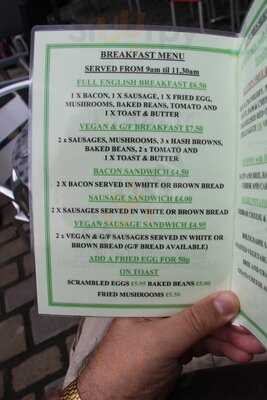 BREAKFAST MENU
SERVED FROM 9am til 11.30am
FULL ENGLISH BREAKFAST £6.50
1 X BACON, 1 X SAUSAGE, 1 X FRIED EGG,
MUSHROOMS, BAKED BEANS, TOMATO AND
1 X TOAST & BUTTER
VEGAN & G/F BREAKFAST £7.50
2 x SAUSAGES, MUSHROOMS, 3 x HASH BROWNS,
BAKED BEANS, 2 x TOMATO AND
1 X TOAST & BUTTER
BACON SANDWICH £4.50
2 X BACON SERVED IN WHITE OR BROWN BREAD
SAUSAGE SANDWICH £4.00
2 X SAUSAGES SERVED IN WHITE OR BROWN BREAD
VEGAN SAUSAGE SANDWICH £4.95
2 x VEGAN & G/F SAUSAGES SERVED IN WHITE OR
BROWN BREAD (G/F BREAD AVAILABLE)
ADD A FRIED EGG FOR 50p
ON TOAST
SCRAMBLED EGGS £5.95 BAKED BEANS £5.00
FRIED MUSHROOMS £5.50